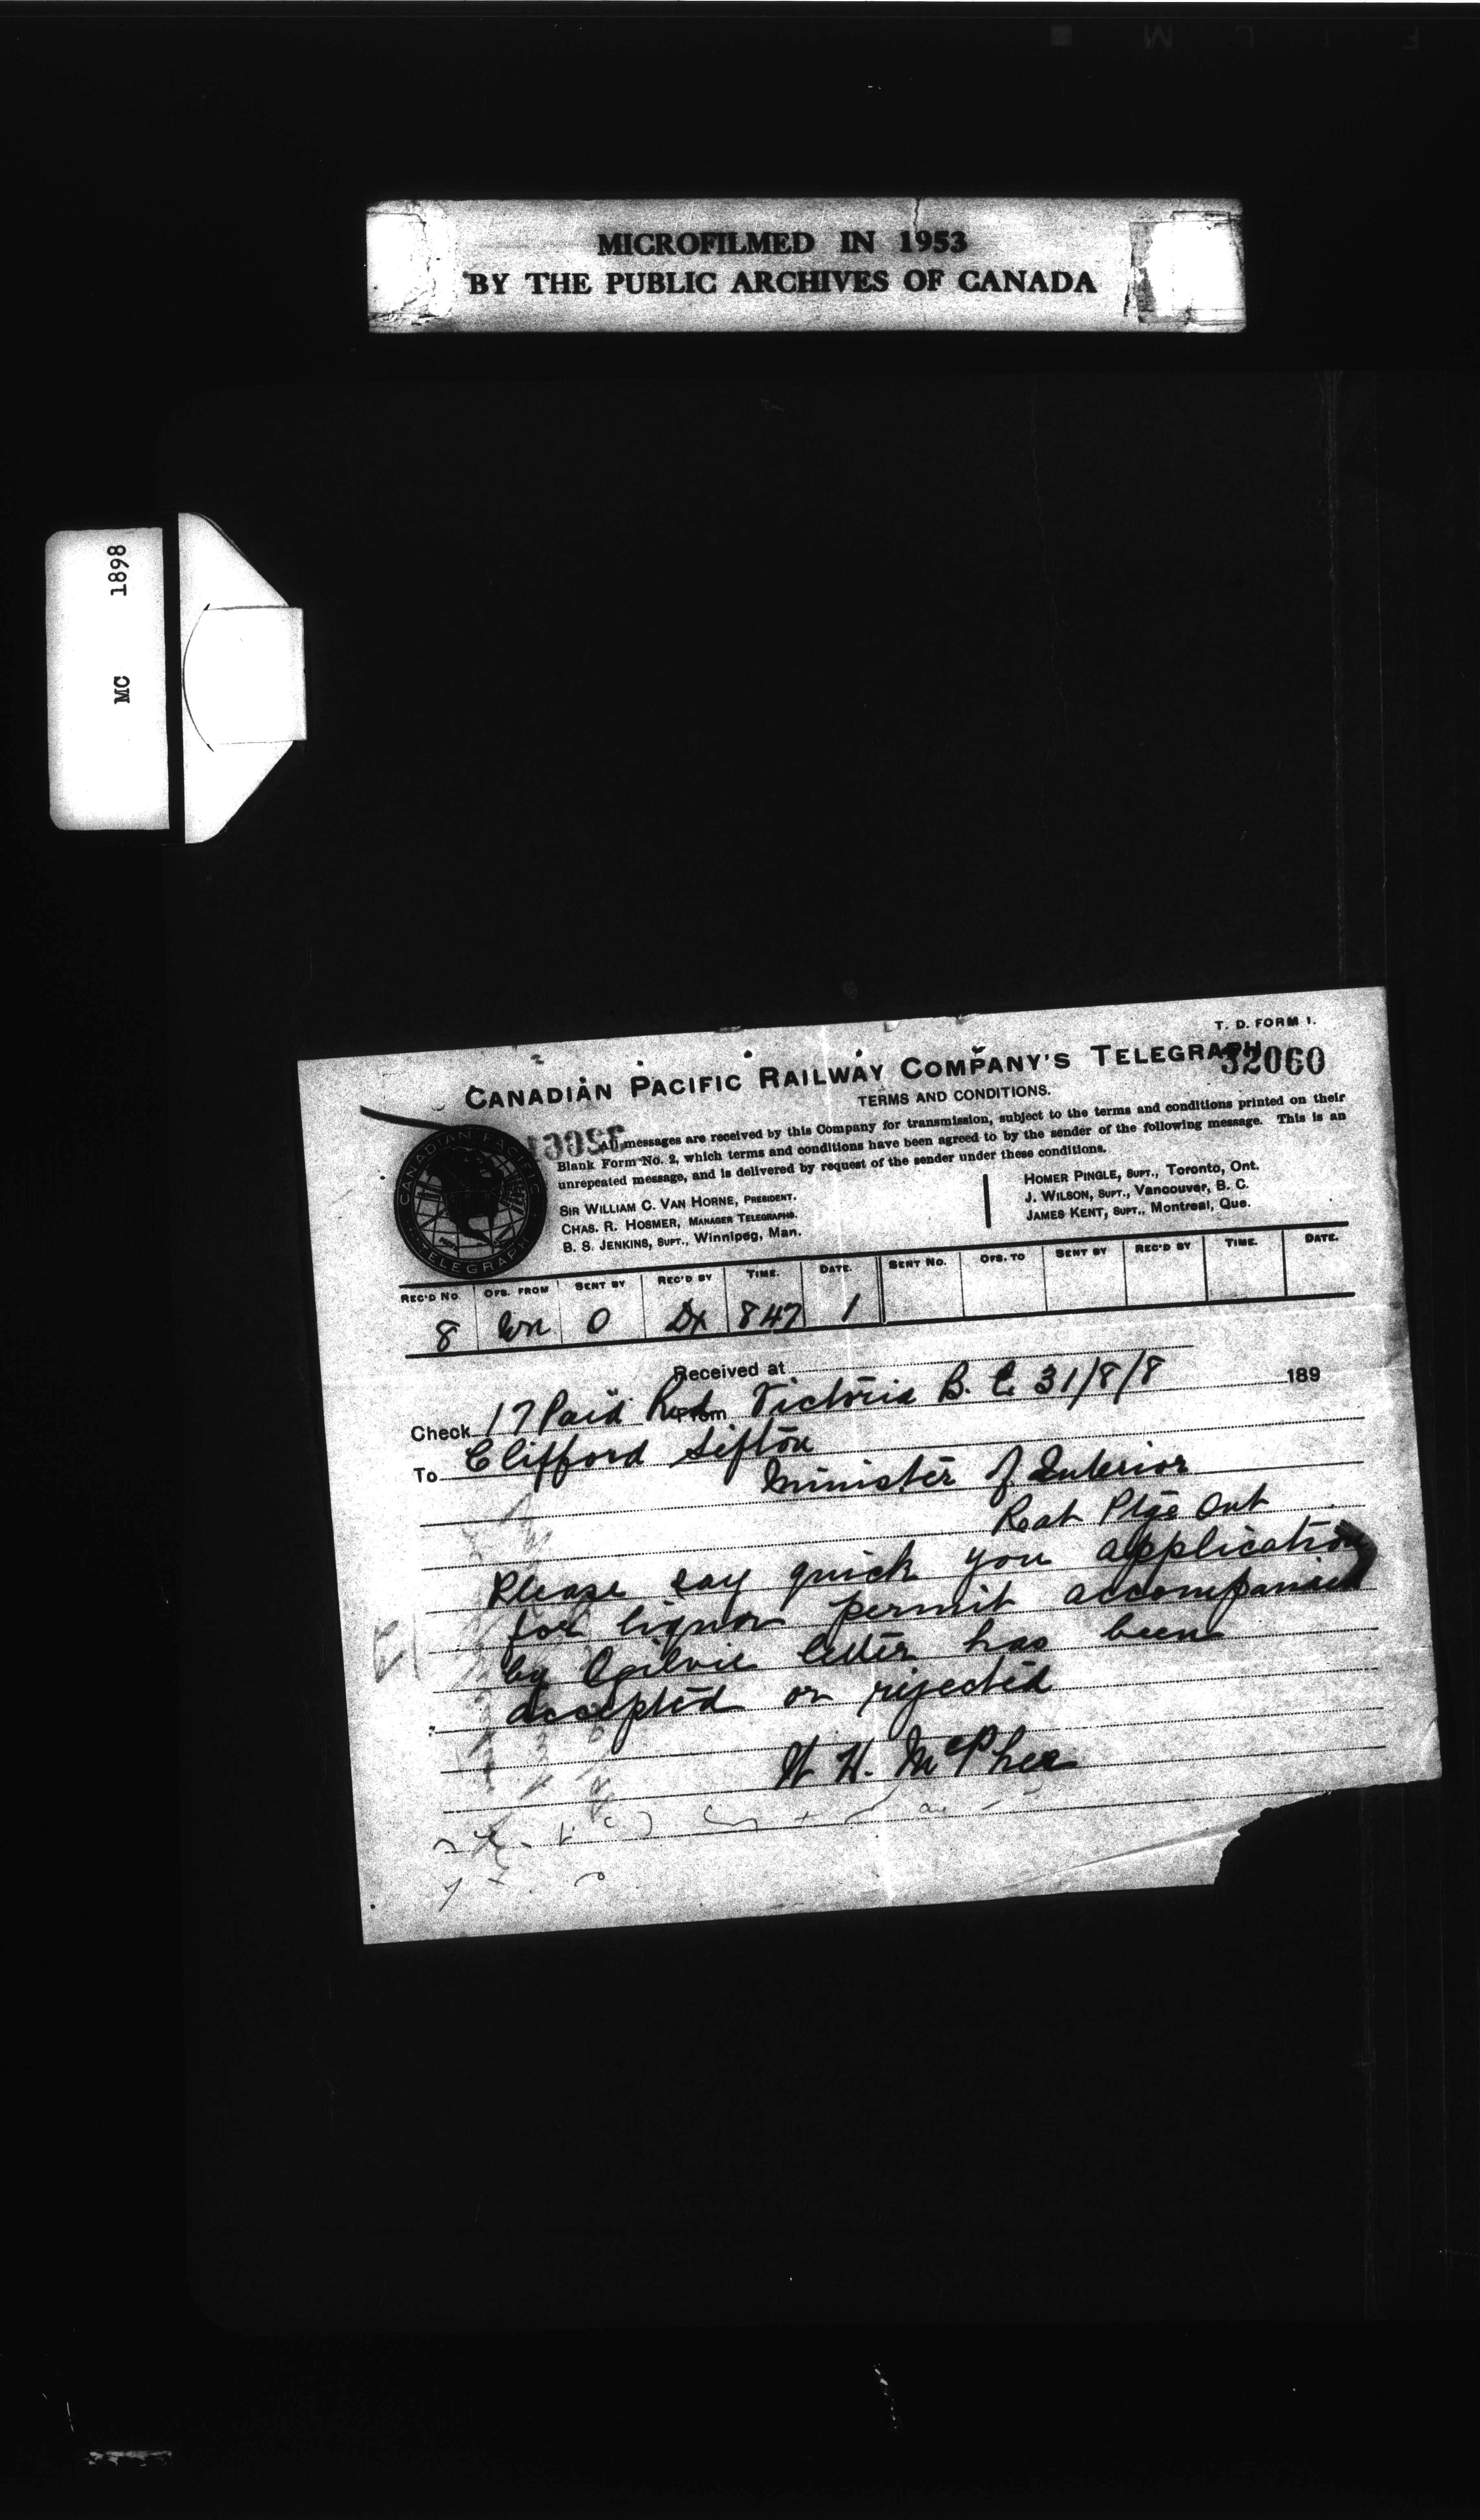 MICROFILMED IN 1953
BY THE PUBLIC ARCHIVES OF CANADA
MC 1898
T. D. FORM 1.
CANADIAN PACIFIC RAILWAY COMPANY'S TELEGRAPH
32060
TERMS AND CONDITIONS.
All messages are received by this Company for transmission, subject to the terms and conditions printed on their
Blank Form No. 2, which terms and conditions have been agreed to by the sender of the following message. This is an
unrepeated message, and is delivered by request of the sender under these conditions.
CANADIAN PACIFIC TELEGRAPH
SIR WILLIAM C. VAN HORNE, PRESIDENT.
CHAS. R. HOSMER, MANAGER TELEGRAPHS.
B. S. JENKINS, SUPT., Winnipeg, Man.
HOMER PINGLE, SUPT., Toronto, Ont.
J. WILSON, SUPT., Vancouver, B. C.
JAMES KENT, SUPT., Montreal, Que.
REC'D NO. OFS. FROM SENT BY REC'D BY TIME. DATE. SENT NO. OFS. TO SENT BY REC'D BY TIME. DATE.
8 Wn O Dx 847 1
Received at
Check 17 Paid From Victoria B. C. 31/8/8 189
To Clifford Sifton
Minister of Interior
Rat Ptge Ont
Please say quick you application
for liquor permit accompanied
by Ogilvie letter has been
accepted or rejected
W H. McPhee